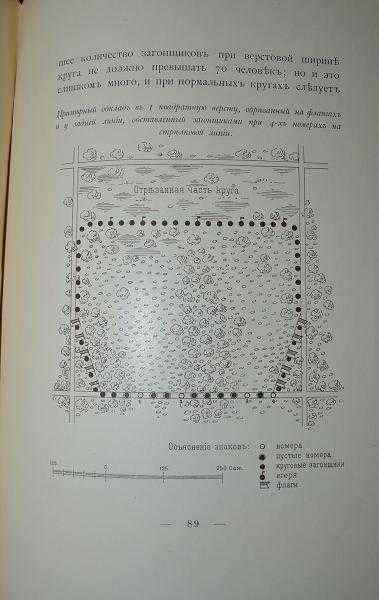 шее количество загонщиковъ при верстовой ширинѣ
круга не должно превышать 70 человѣкъ; но и это
слишкомъ много, и при нормальныхъ кругахъ слѣдуетъ
Просторный окладъ въ 1 квадратную версту, обрѣзанный на флагахъ
и у задней линіи, обставленный загонщиками при 4-хъ номерахъ на
стрѣлковой линіи.
Отрѣзанная часть круга
Объясненіе знаковъ:
номера
пустые номера
круговые загонщики
егеря
флаги
0 125 250 Саж.
— 89 —